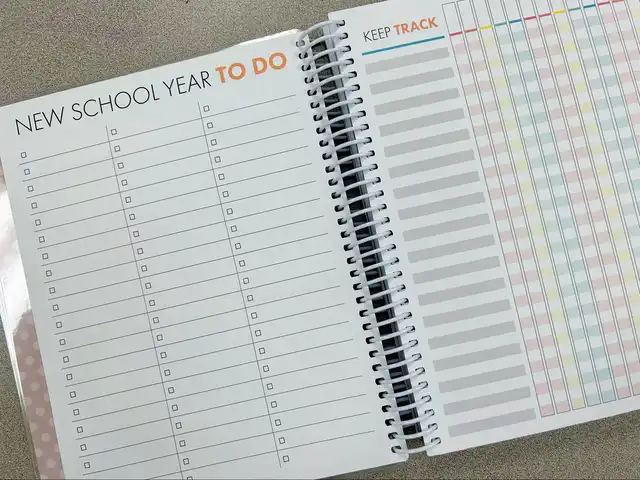 NEW SCHOOL YEAR TO DO
KEEP TRACK